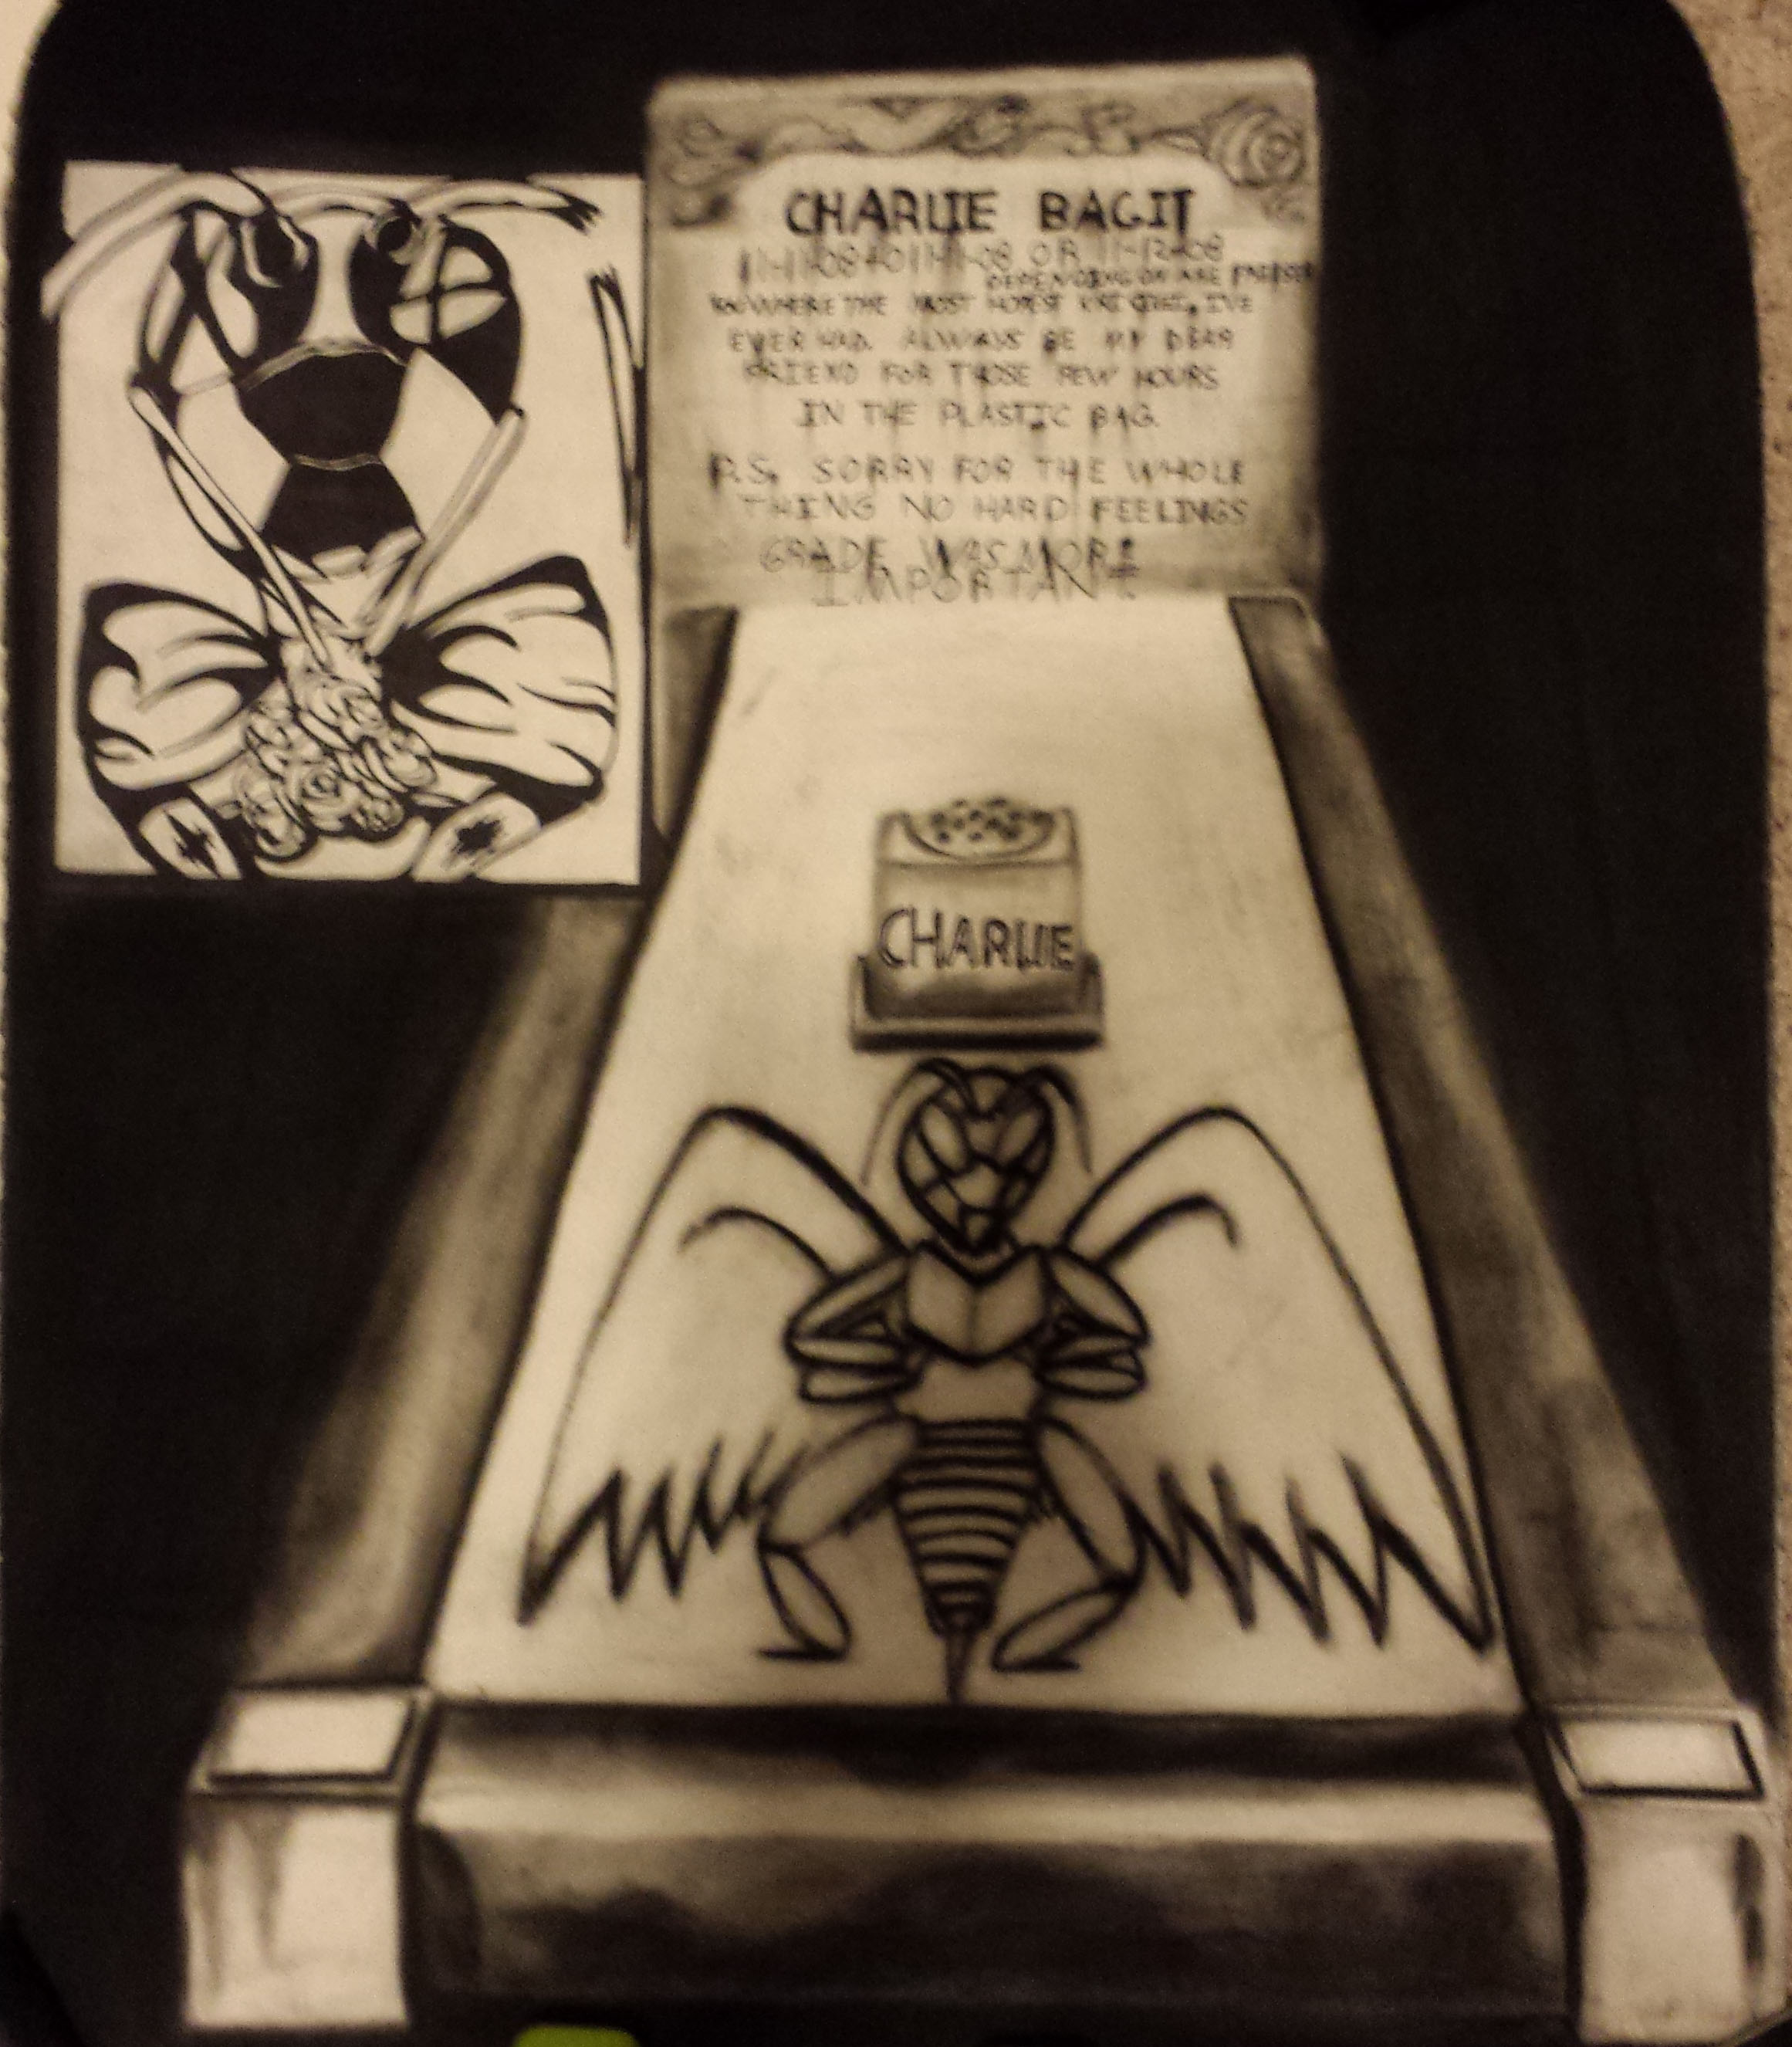 CHARLIE BAGIT
11-11-08 to 11-11-08 OR 11-12-08
DEPENDING ON
YOU WHERE THE MOST I'VE
EVER HAD. ALWAYS BE MY DEAR
FRIEND FOR THOSE FEW HOURS
IN THE PLASTIC BAG.
P.S. SORRY FOR THE WHOLE
THING NO HARD FEELINGS
GRADE WAS MORE
IMPORTANT.
CHARLIE